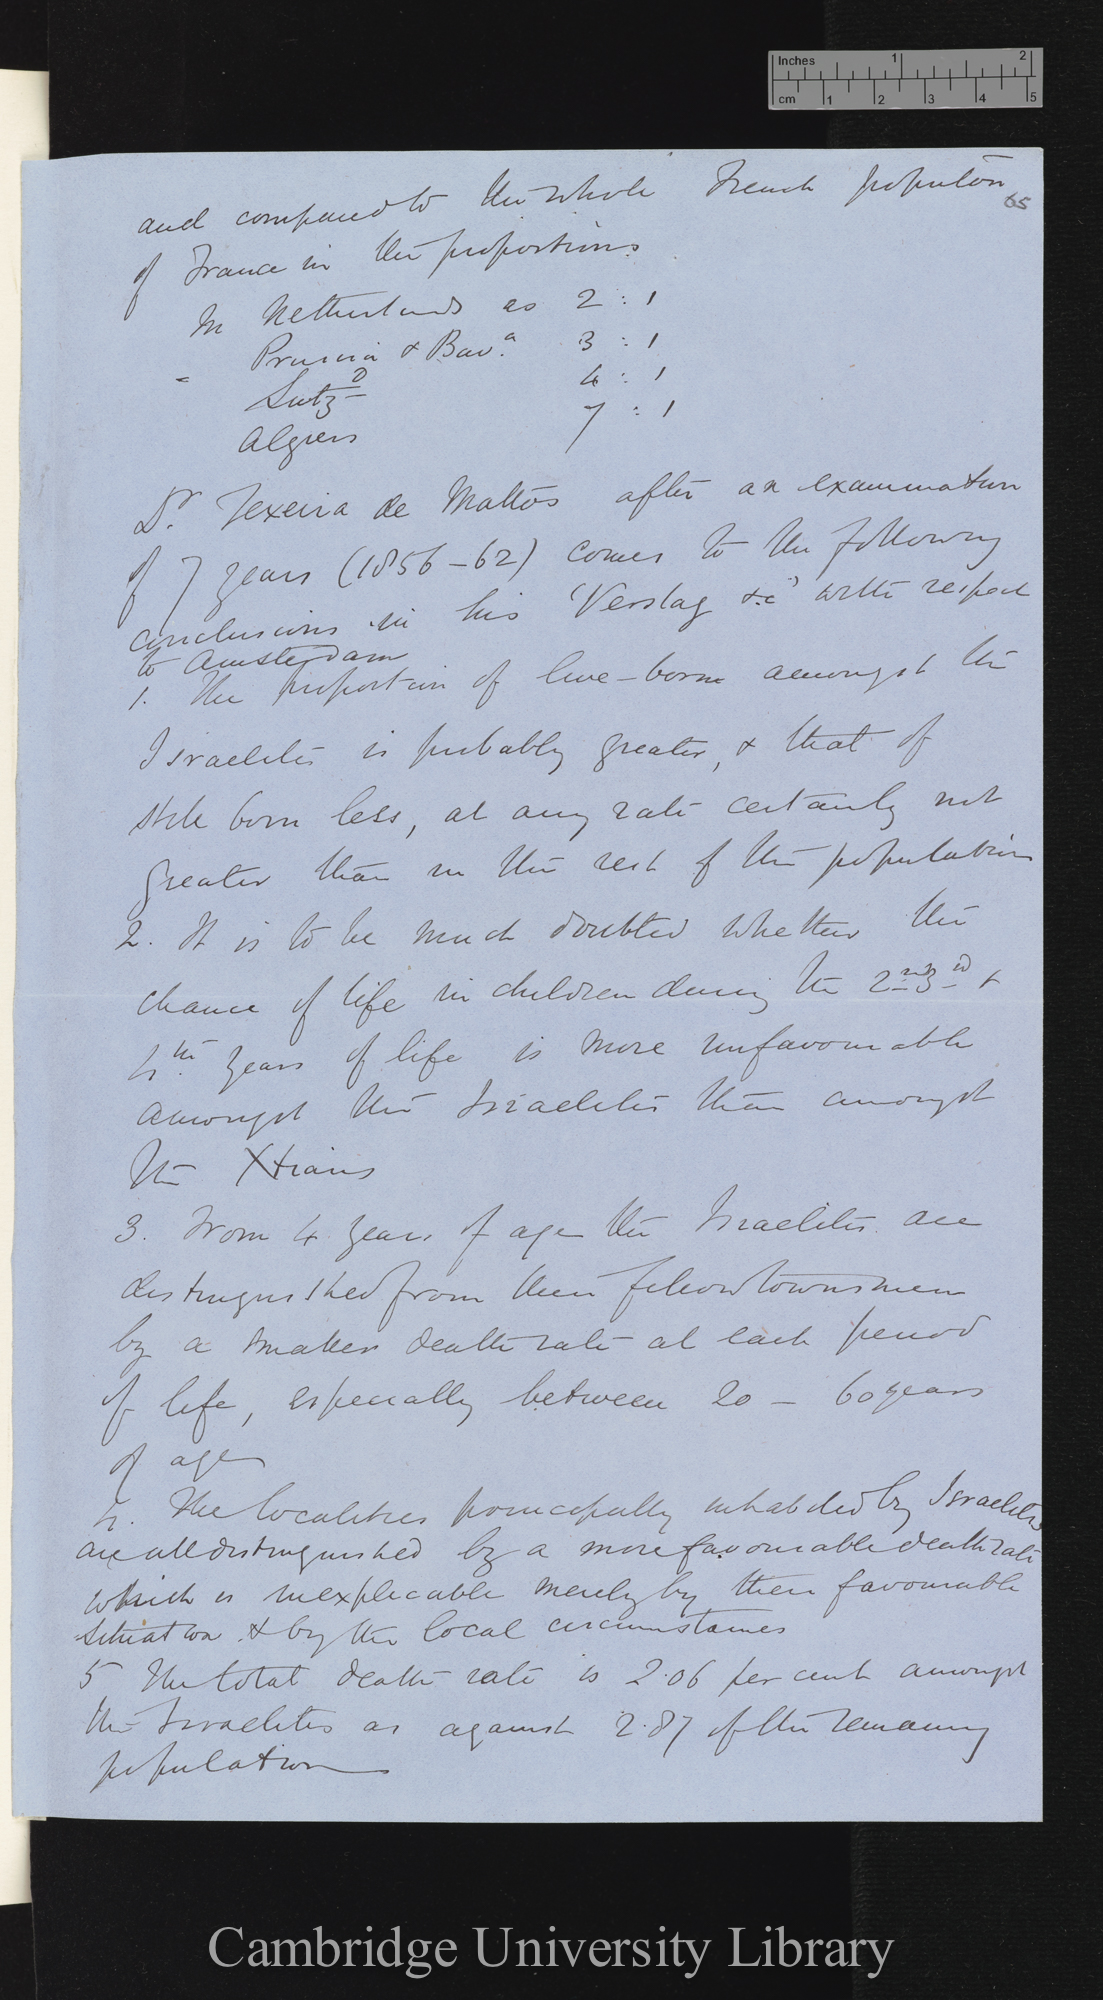 Inches 1 2
cm 1 2 3 4 5
65
and compared to the whole French populōn
of France in the proportions
In Netherlands as 2 : 1
" Prussia & Bav.a 3 : 1
Switzd 4 : 1
Algiers 7 : 1
Dr. Texeira de Mattos after an examination
of 7 years (1856-62) comes to the following
conclusions in his 'Verslag &c' with respect
to Amsterdam
1. The proportion of live-born amongst the
Israelites is probably greater, & that of
still born less, at any rate certainly not
greater than in the rest of the population
2. It is to be much doubted whether the
chance of life in children during the 2nd 3d &
4th years of life is more unfavourable
amongst the Israelites than amongst
the Xtians
3. From 4 years of age the Israelites are
distinguished from their fellow townsmen
by a smaller death rate at each period
of life, especially between 20 - 60 years
of age
4. The localities principally inhabited by Israelites
are all distinguished by a more favourable death rate
which is inexplicable merely by their favourable
situation & by the local circumstances
5 The total death rate is 2.06 per cent amongst
the Israelites as against 2.87 of the remaining
population
Cambridge University Library